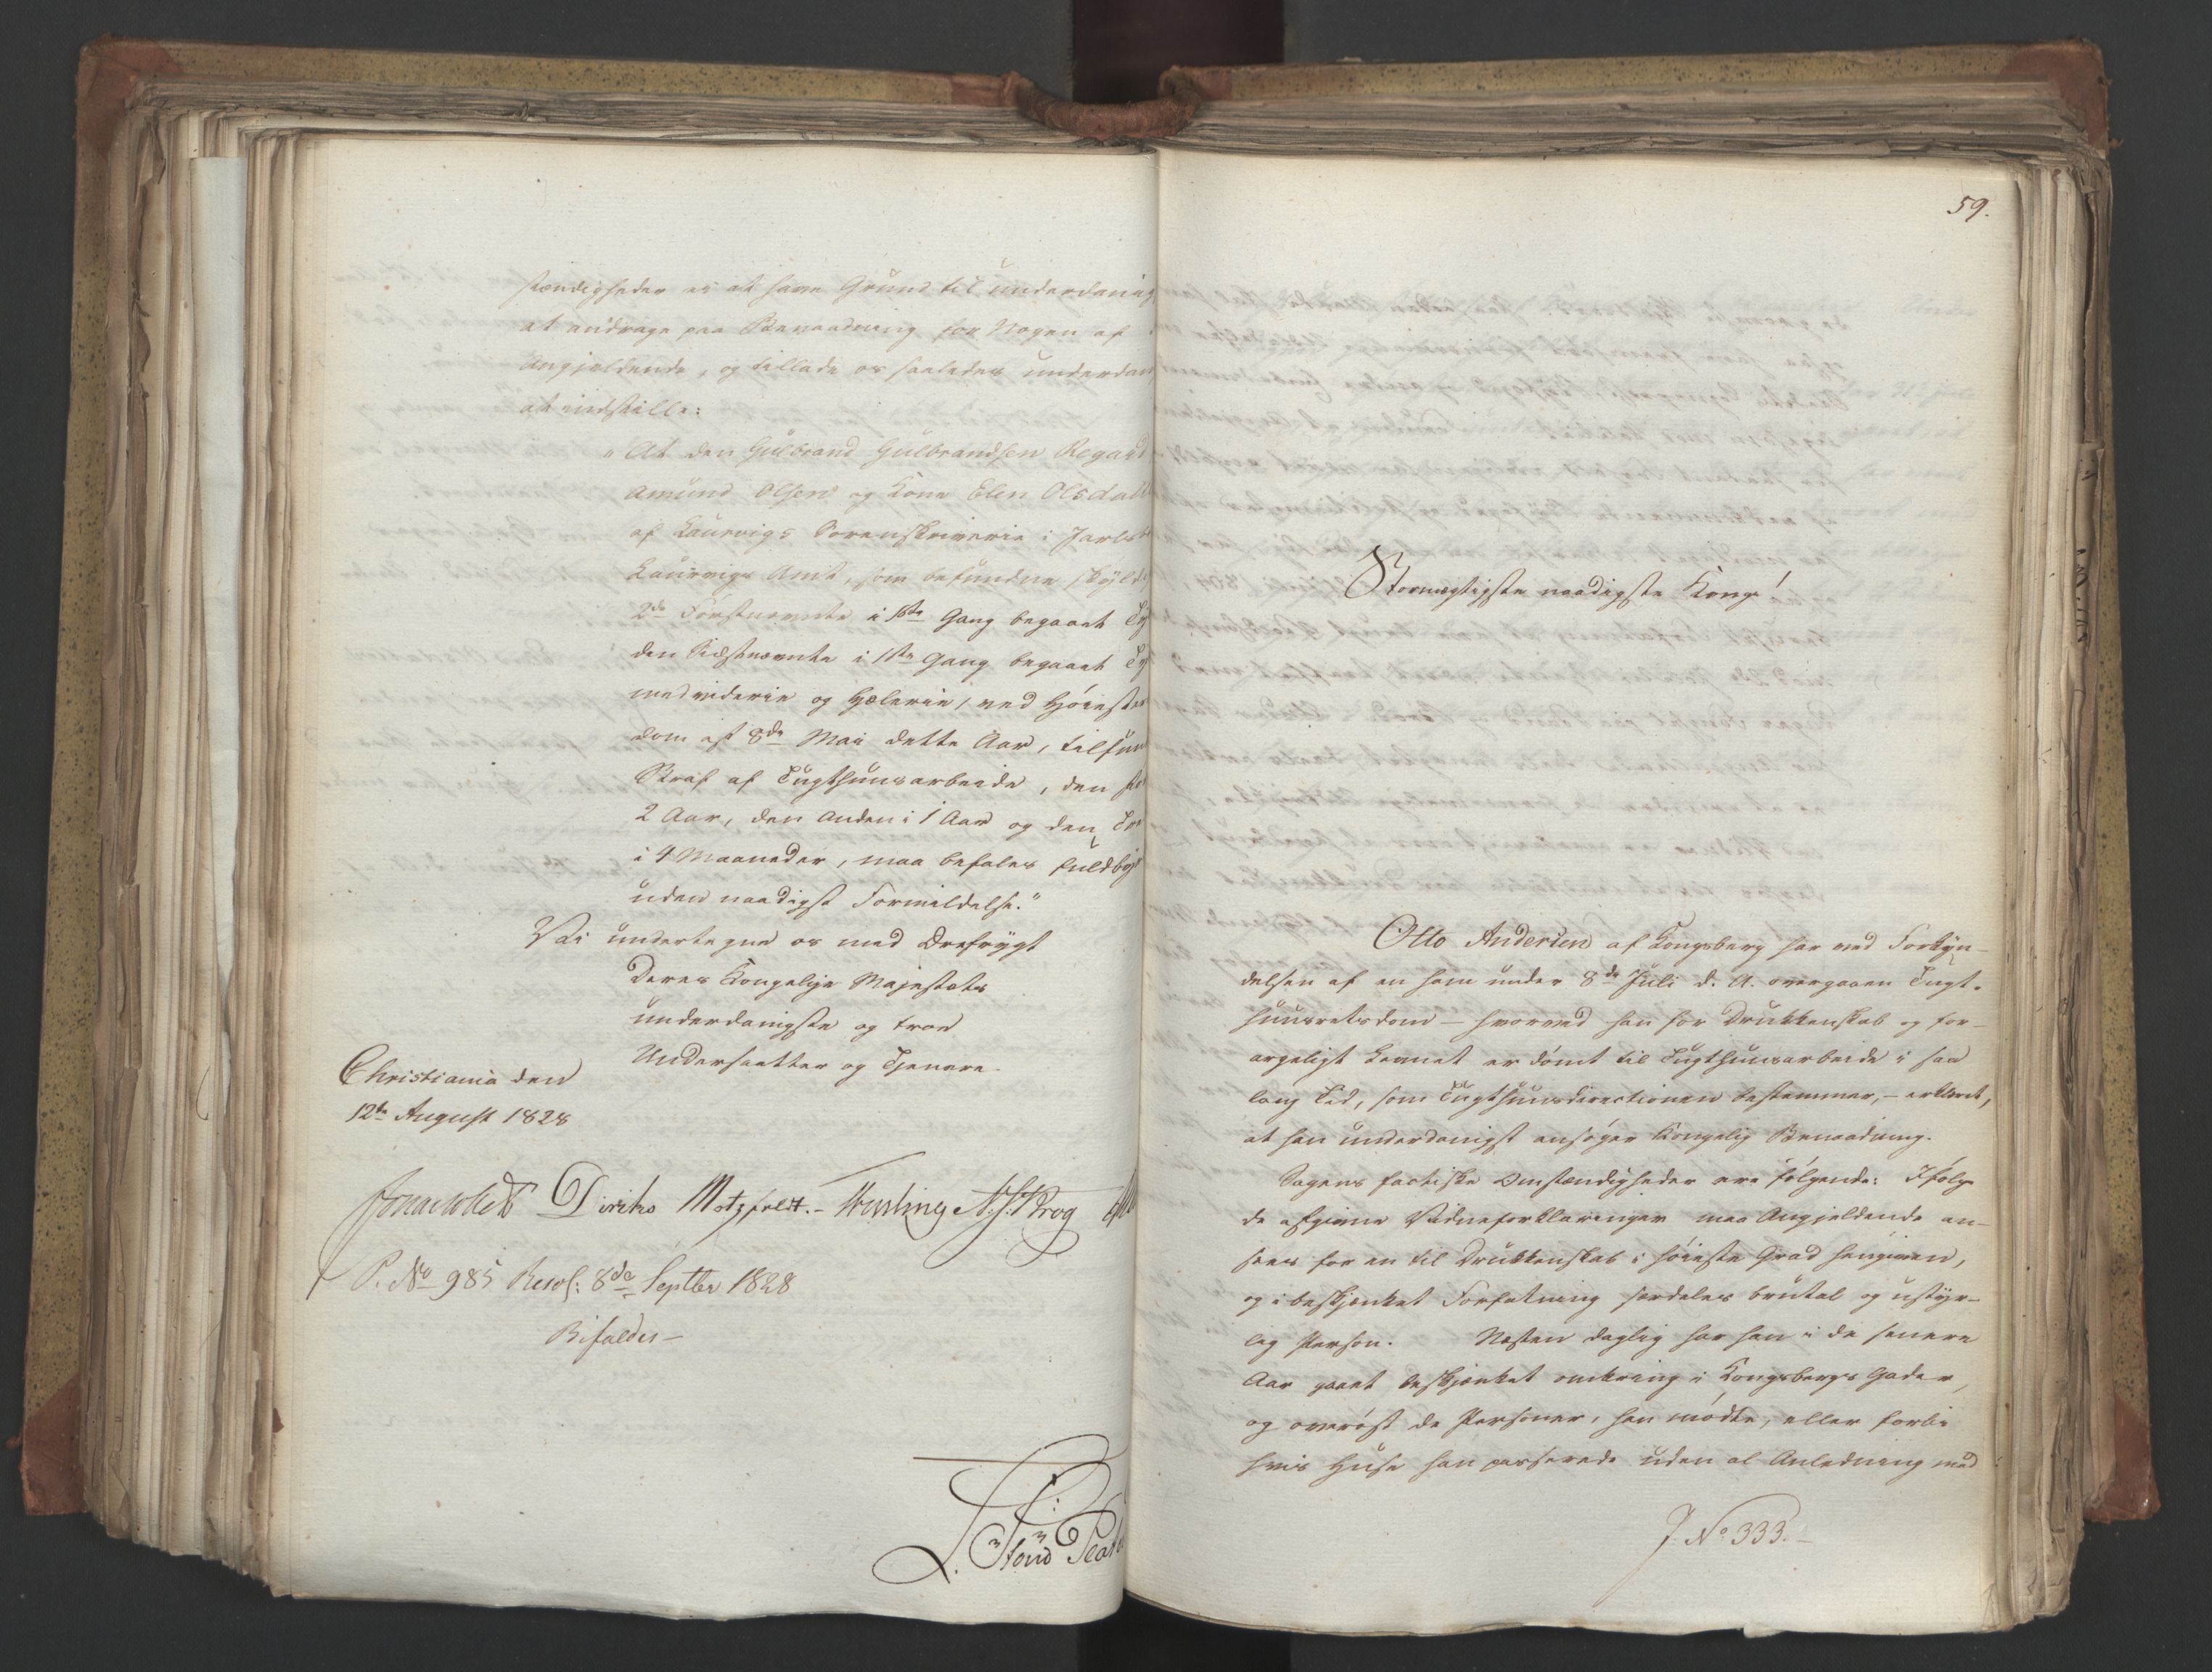 stændigheder ei at have Grund til underdanigst
at andrage paa Benaadning for Nogen af
Angjeldende, og tillade os saaledes underdan
at indstille:
"At den Gulbrand Gulbrandsen Regard
Amund Olsen og Kone Elen Olsdatt
af Laurvigs Sorenskriverie i Jarlsb
Laurvigs Amt, som befundne skyldi
2de Førstnævnte i 1ste Gang begaaet Ty
den Sidstnævnte i 1ste Gang begaaet Ty
medviderie og Hæleri, ved Høieste
dom af 8de Mai dette Aar, tilfun
Straf af Tugthuusarbeide, den før
2 Aar, den Anden i 1 Aar og den Tre
i 4 Maaneder, maa befales fuldby
uden naadigst Formildelse."
Vi undertegne os med Ærefrygt
Deres Kongelige Majestæts
underdanigste og troe
Undersaatter og Tjenere.
Christiania den
12te August 1828
Jonas Collett Diriks Motzfeldt.- N.J. Krog
P. No 985 Resol: 8de Septbr 1828
Bifaldes-
59.
Stormægtigste naadigste Konge!
Otto Andersen af Kongsberg har ved Forkyn-
delsen af en ham under 8de Juli d. A. overgaaen Tugt-
huusretsdom - hvorved han for Drukkenskab og for-
argeligt Levnet er dømt til Tugthuusarbeide i saa
lang Tid, som Tugthuusdirectionen bestemmer, - erklæret,
at han underdanigst ansøger Kongelig Benaadning.
Sagens factiske Omstændigheder ere følgende: Ifølge
de afgivne Vidneforklaringer maa Angjeldende an-
sees for en til Drukkenskab i høieste Grad hengiven,
og i beskjenket Forfatning særdeles brutal og ustyr-
lig Person. Næsten daglig har han i de senere
Aar gaaet beskjenket omkring i Kongsbergs Gader,
og overøst de Personer, han mødte, eller forbi
hvis Huse han passerede uden al Anledning med
J. No 333.-